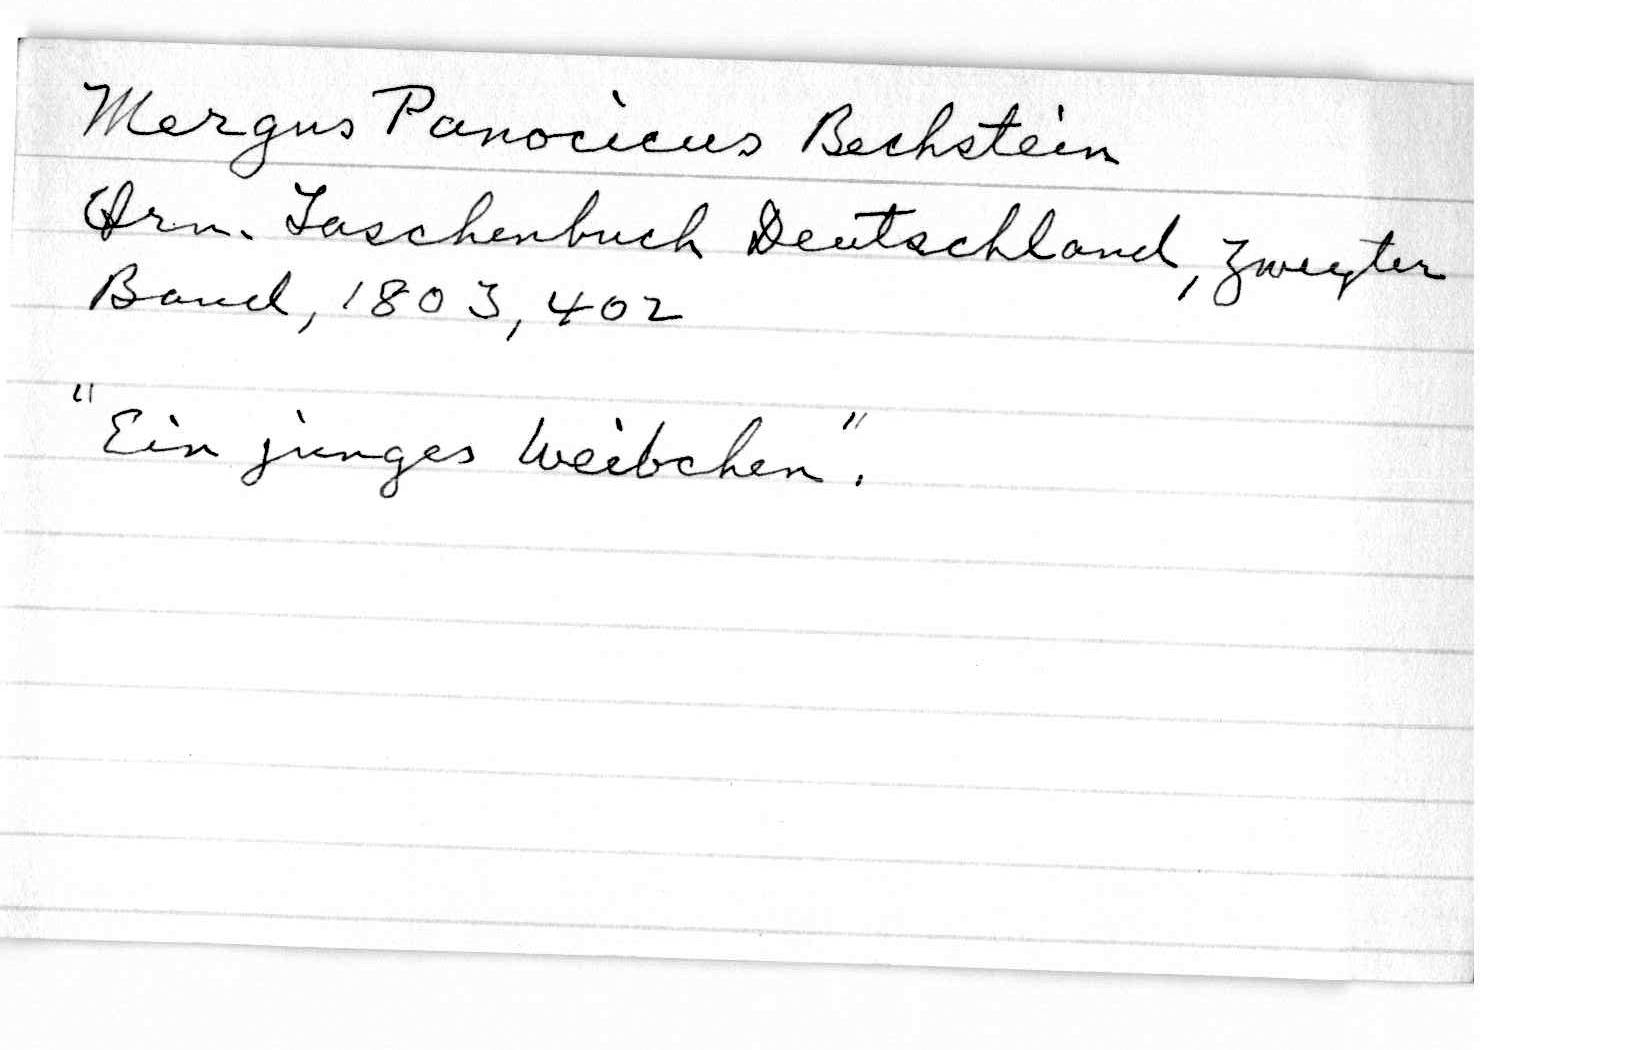 Mergus Panocicus Bechstein
Orn. Taschenbuch Deutschland, Zweyter
Band, 1803, 402
"Ein junges Weibchen".